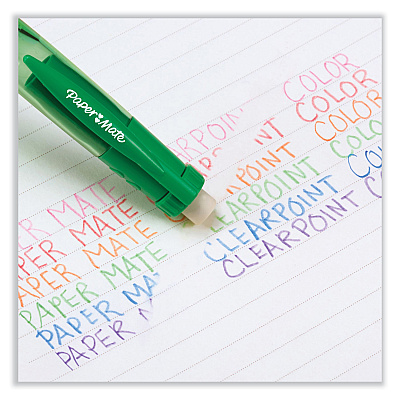 Paper Mate
PAPER MATE CLEARPOINT COLOR
PAPER MATE CLEARPOINT COLOR
PAPER MATE CLEARPOINT COLOR
PAPER MATE CLEARPOINT COLO
PAPER MATE CLEARPOINT CO
PAPER MA CLEARPOINT